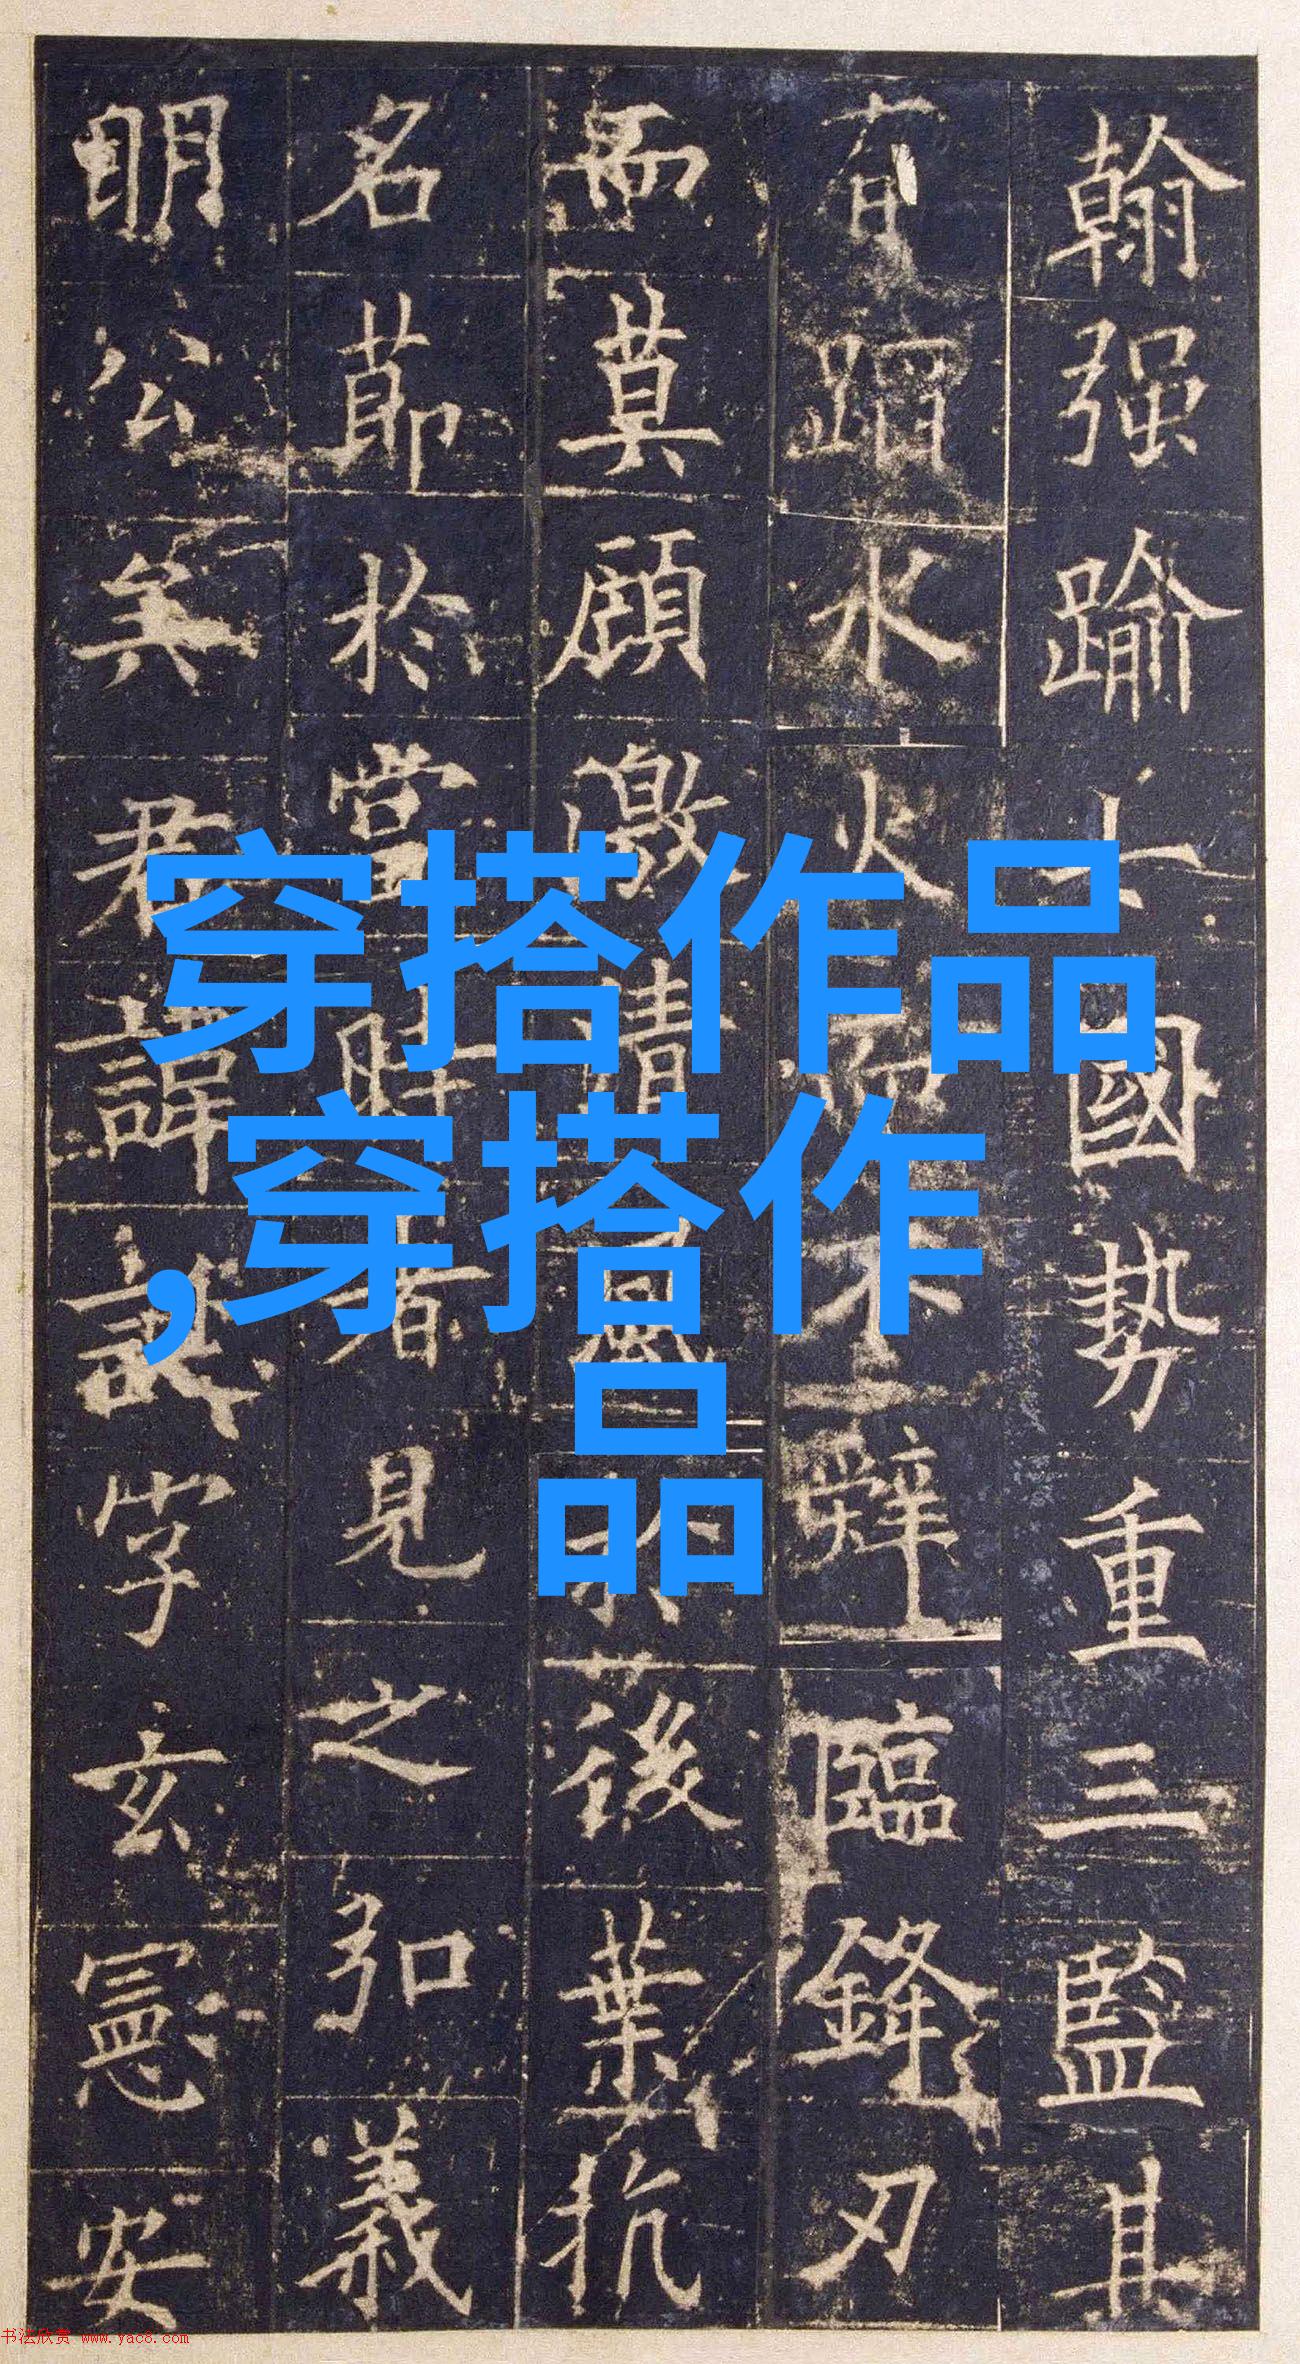 穿搭作品
,穿搭作
品
翰强踰七國勢重三監其
有蹈水火而不辭臨鋒刃
而莫顧激清風於後葉抗
名節於當時者見之弘義
明公矣君諱誕字玄憲安
书法欣赏 www.yac8.com